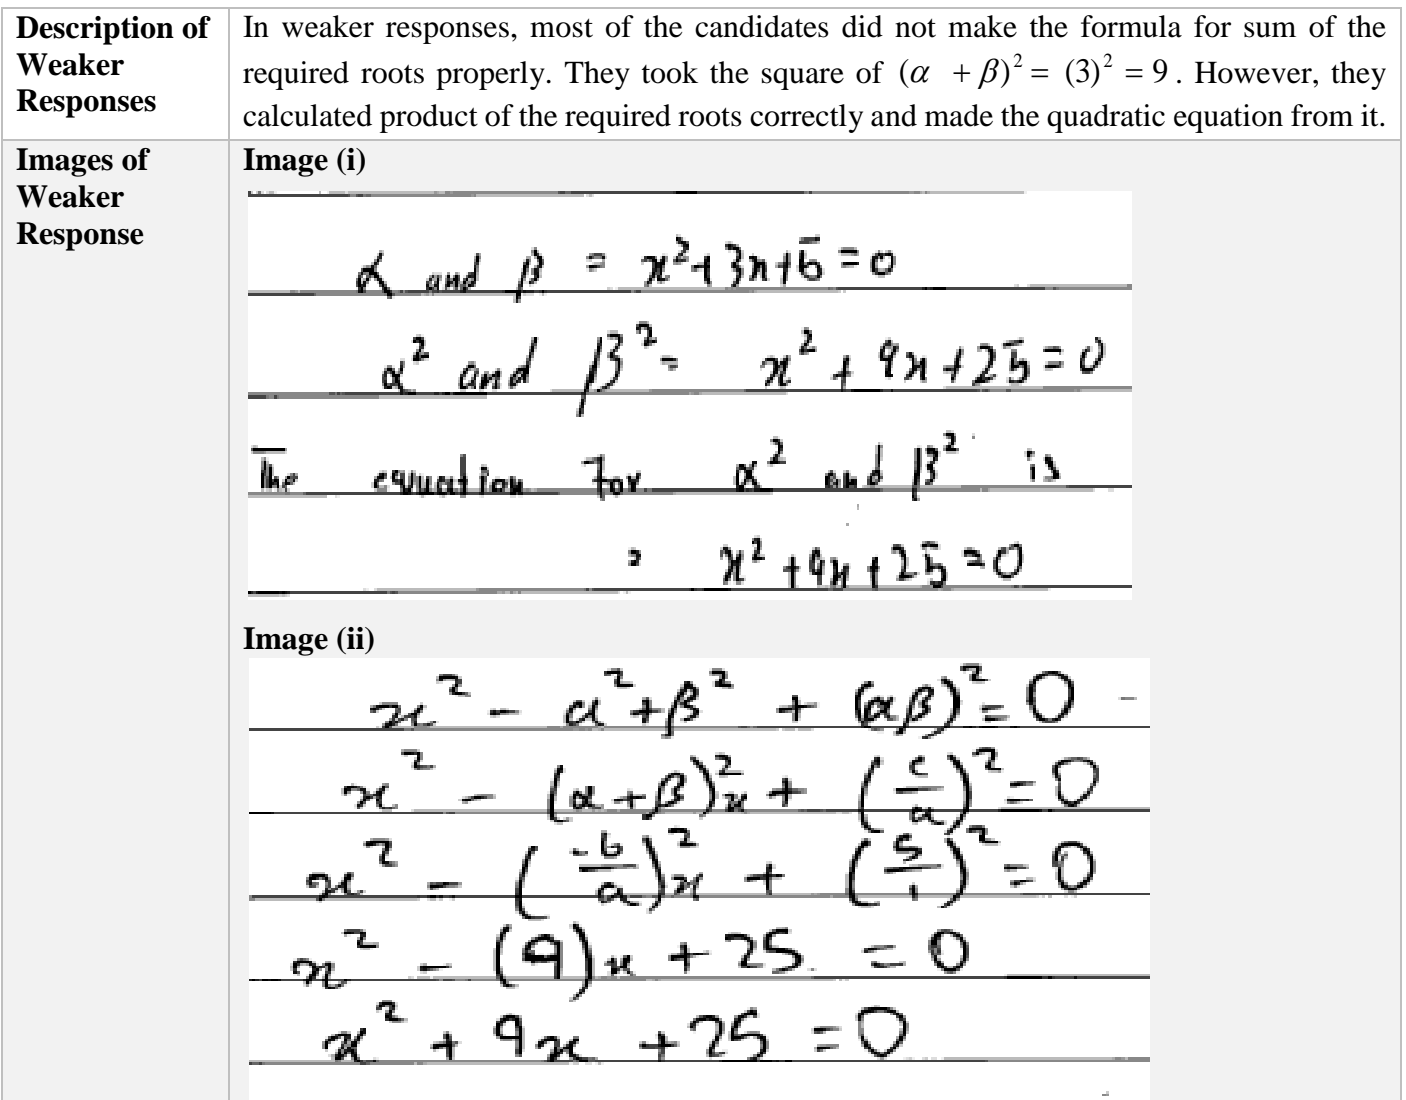 Description of Weaker Responses
In weaker responses, most of the candidates did not make the formula for sum of the
required roots properly. They took the square of (α + β)² = (3)² = 9. However, they
calculated product of the required roots correctly and made the quadratic equation from it.
Images of Weaker Response
Image (i)
α and β = x²+3x+5=0
α² and β² = x² + 9x+25=0
The equation for α² and β² is
= x²+9x+25=0
Image (ii)
x² - α²+β² + (αβ)²=0
x² - (α+β)²x + (c/a)²=0
x² - (-b/a)²x + (5/1)²=0
x² - (9)x + 25. = 0
x² + 9x + 25 = 0